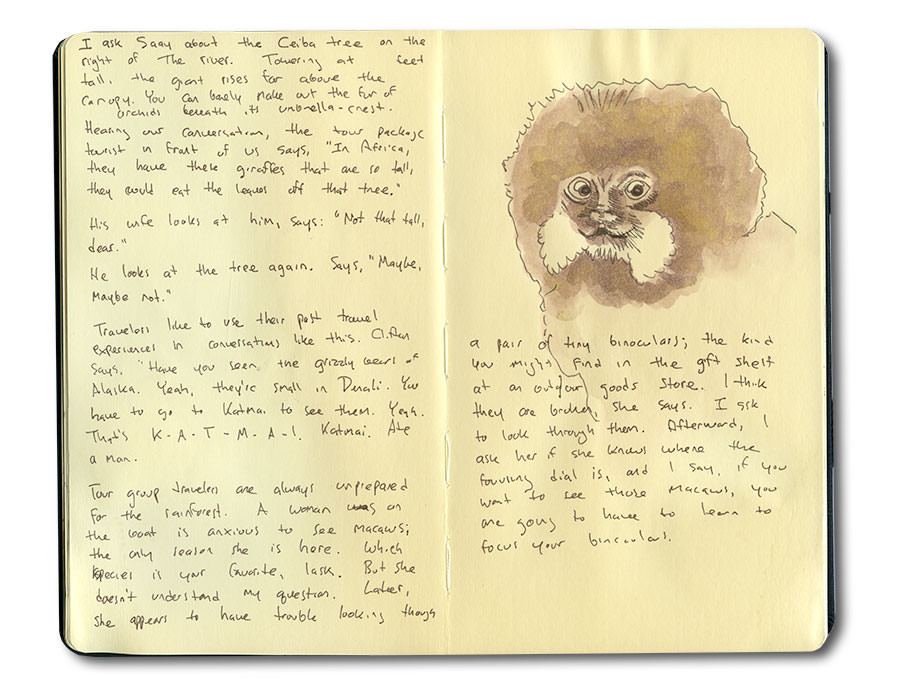 I ask Saay about the Ceiba tree on the
right of The river. Towering at feet
tall, the giant rises far above the
canopy. You can barely make out the fur of
orchids beneath its umbrella-crest.
Hearing our conversation, the tour package
tourist in front of us says, "In Africa,
they have these giraffes that are so tall,
they could eat the leaves off that tree."
His wife looks at him, says: "Not that tall,
dear."
He looks at the tree again. Says, "Maybe,
Maybe not."
Travelers like to use their past travel
experiences in conversations like this.
says, "Have you seen the grizzly bears of
Alaska. Yeah, they're small in Denali. You
have to go to Katmai to see them. Yeah.
That's K-A-T-M-A-I. Katmai. Ate
a man.
Tour group travelers are always unprepared
for the rainforest. A woman on
the boat is anxious to see macaws;
the only reason she is here. Which
species is your favorite, I ask. But she
doesn't understand my question. Later,
she appears to have trouble looking though
a pair of tiny binoculars; the kind
you might find in the gift shelf
at an outdoor goods store. I think
they are broken, she says. I ask
to look through them. Afterward, I
ask her if she knows where the
focusing dial is, and I say, if you
want to see those macaws, you
are going to have to learn to
focus your binoculars.